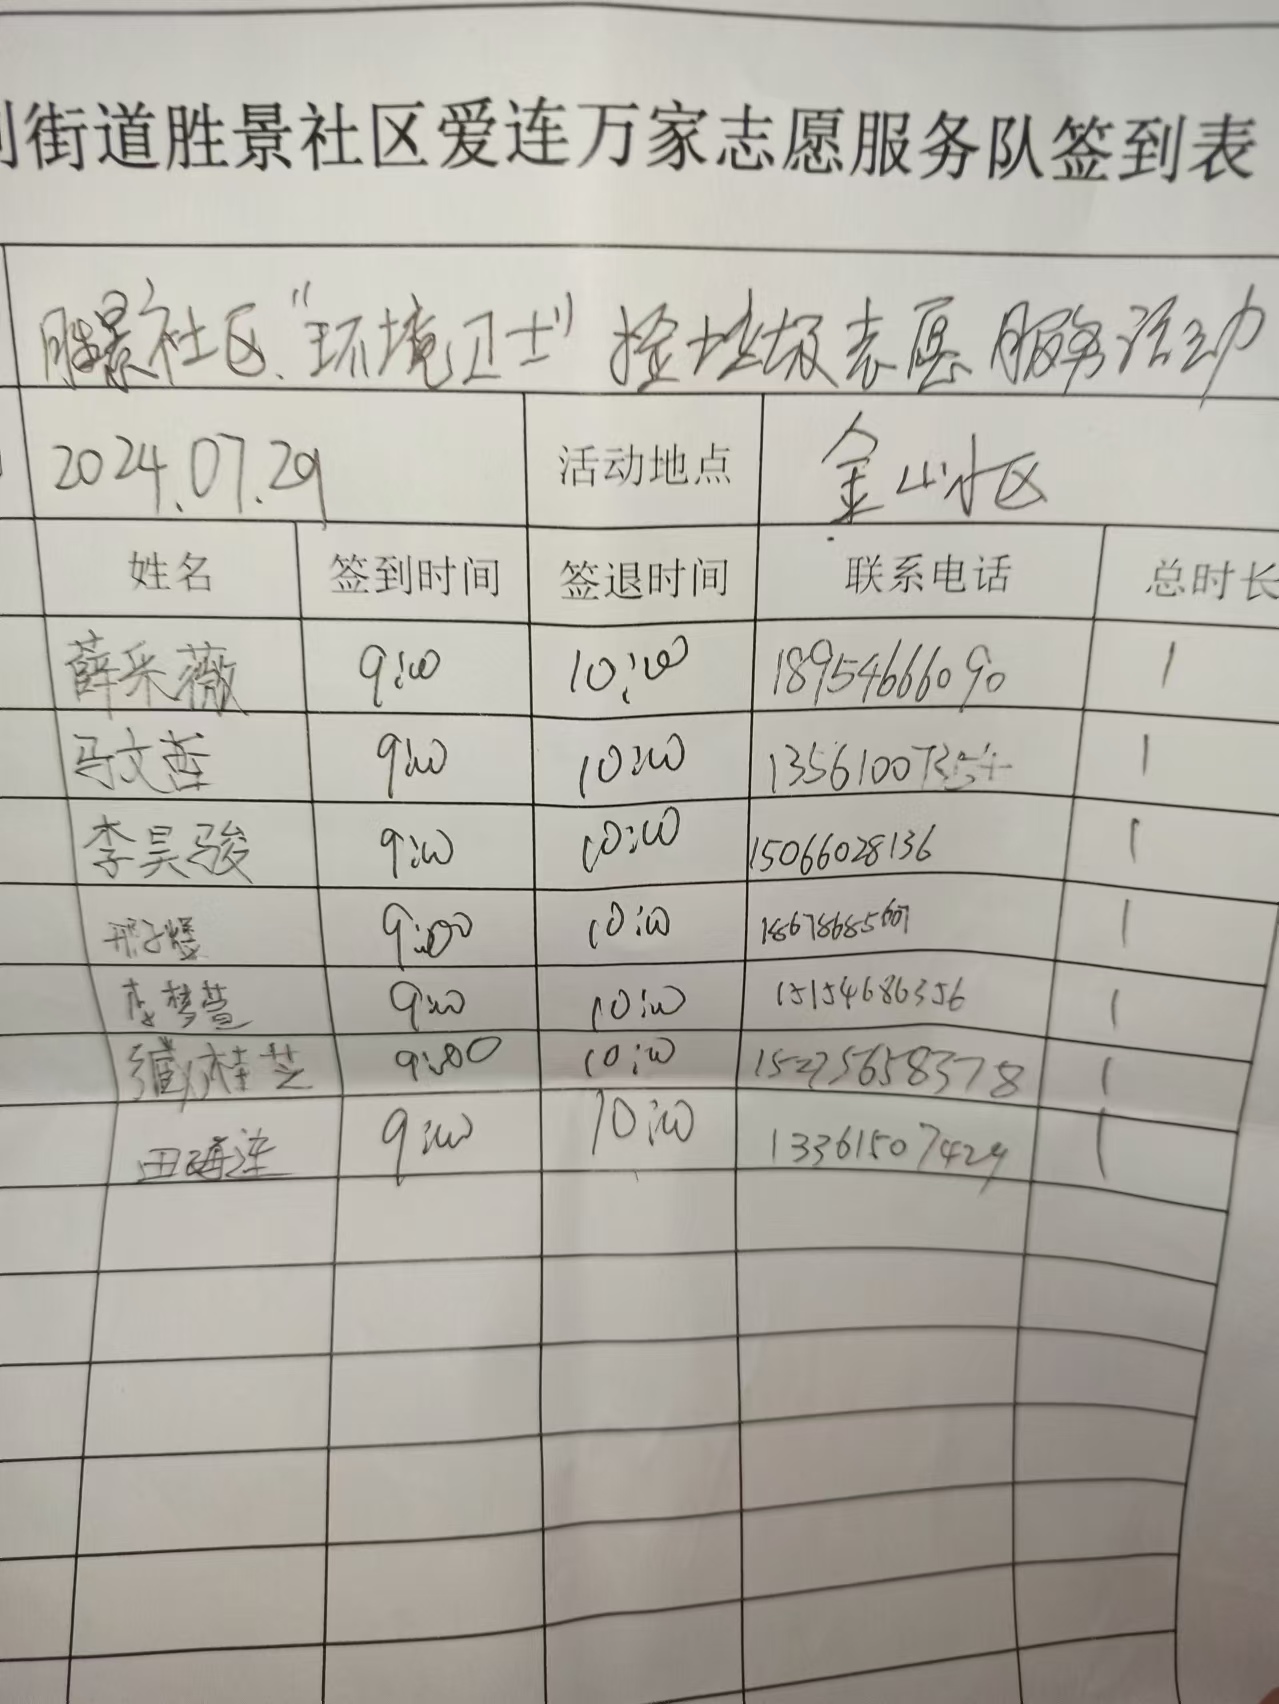 街道胜景社区爱连万家志愿服务队签到表
胜景社区“环境卫士”捡垃圾志愿服务活动
2024.07.29 活动地点 金山小区
姓名 签到时间 签退时间 联系电话 总时长
薛采薇 9:00 10:00 18954666090 1
马文哲 9:00 10:00 1
李昊骏 9:00 10:00 15066028136 1
9:00 10:00 18678685607 1
李梦萱 9:00 10:00 15154686356 1
臧桂芝 9:00 10:00 15275658378 1
田海连 9:00 10:00 13361507429 1